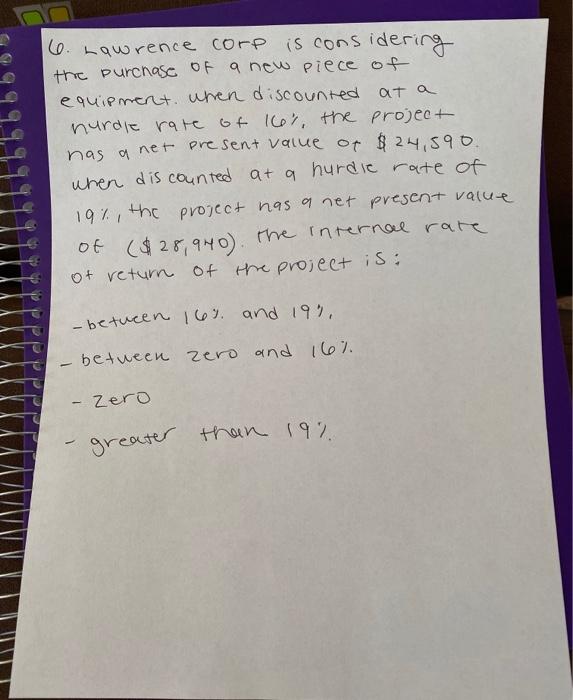 6. Lawrence corp is considering
the purchase of a new piece of
equipment. when discounted at a
hurdle rate of 16%, the project
has a net present value of $24,590.
when discounted at a hurdle rate of
19%, the project has a net present value
of ($28,940). The internal rate
of return of the project is:
- between 16% and 19%.
- between zero and 16%.
- zero
- greater than 19%.